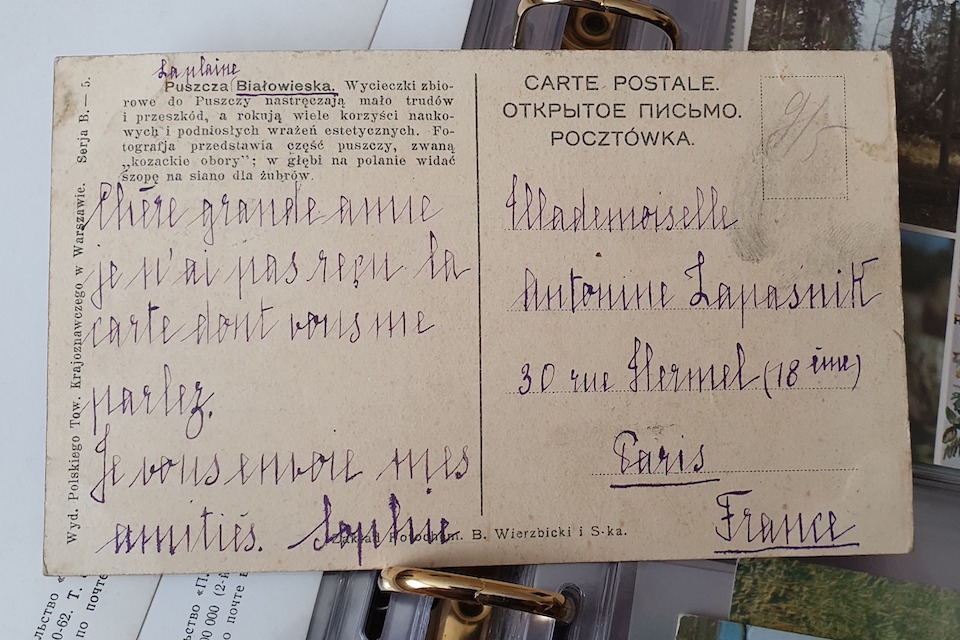 La plaine
Puszcza Białowieska. Wycieczki zbio-
rowe do Puszczy nastręczają mało trudów
i przeszkód, a rokują wiele korzyści nauko-
wych i podniosłych wrażeń estetycznych. Fo-
tografja przedstawia część puszczy, zwaną
„kozackie obory"; w głębi na polanie widać
szopę na siano dla żubrów.
Chère grande amie
je n'ai pas reçu la
carte dont vous me
parlez.
Je vous envoie mes
amitiés. Sophie
Wyd. Polskiego Tow. Krajoznawczego w Warszawie. Serja B.— 5.
Zakład Fotochem. B. Wierzbicki i S-ka.
CARTE POSTALE.
ОТКРЫТОЕ ПИСЬМО.
POCZTÓWKA.
Mademoiselle
Antonine Lapasnik
30 rue Hermel (18 ème)
Paris
France